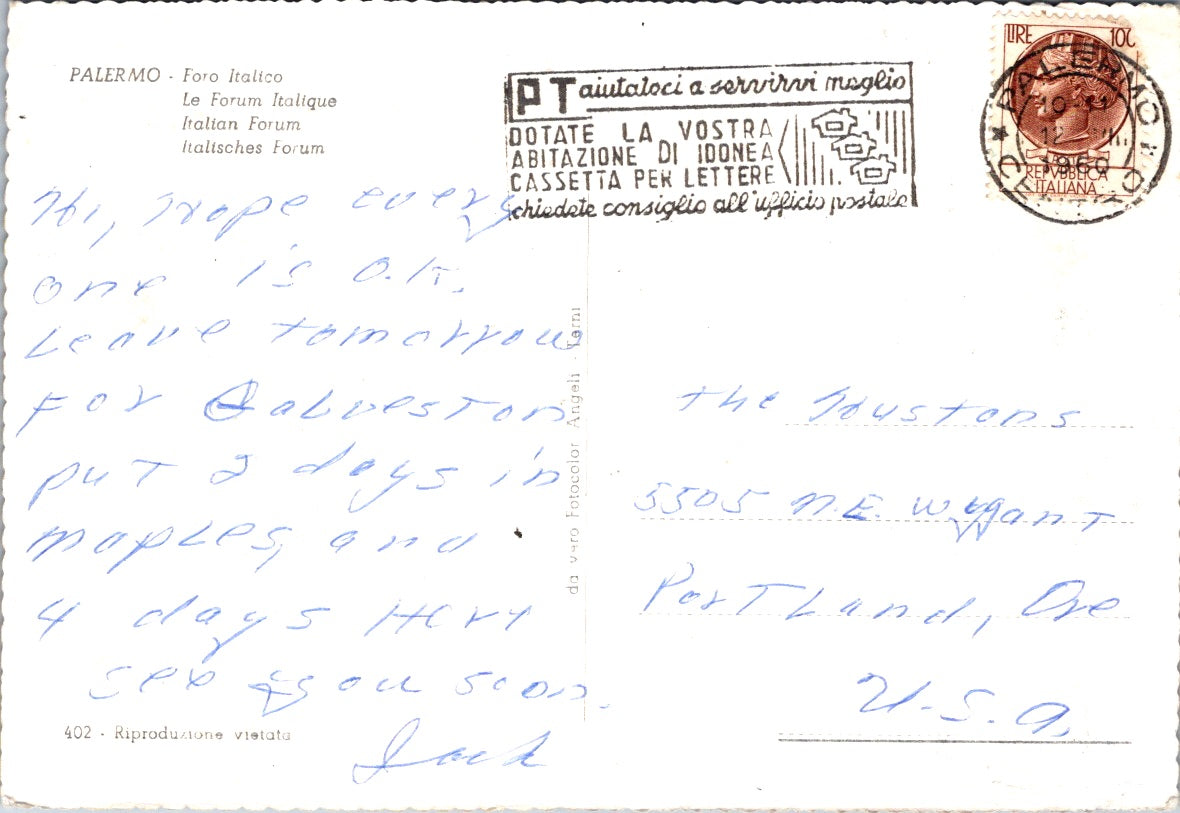 PALERMO - Foro Italico
Le Forum Italique
Italian Forum
Italisches Forum
PT aiutateci a servirvi meglio
DOTATE LA VOSTRA
ABITAZIONE DI IDONEA
CASSETTA PER LETTERE
chiedete consiglio all'ufficio postale
LIRE 100
REPVBBLICA
ITALIANA
* PALERMO
10-11
12
1960
CENTRO
Hi, Hope every
one is O.K.
Leave tomorrow
For Galveston
put 2 days in
Naples, and
4 days Here
see you soon.
Jack
da vero Fotocolor Angeli - Terni
The Hustons
5505 N.E. Wygant
Portland, Ore
U.S.A.
402 - Riproduzione vietata